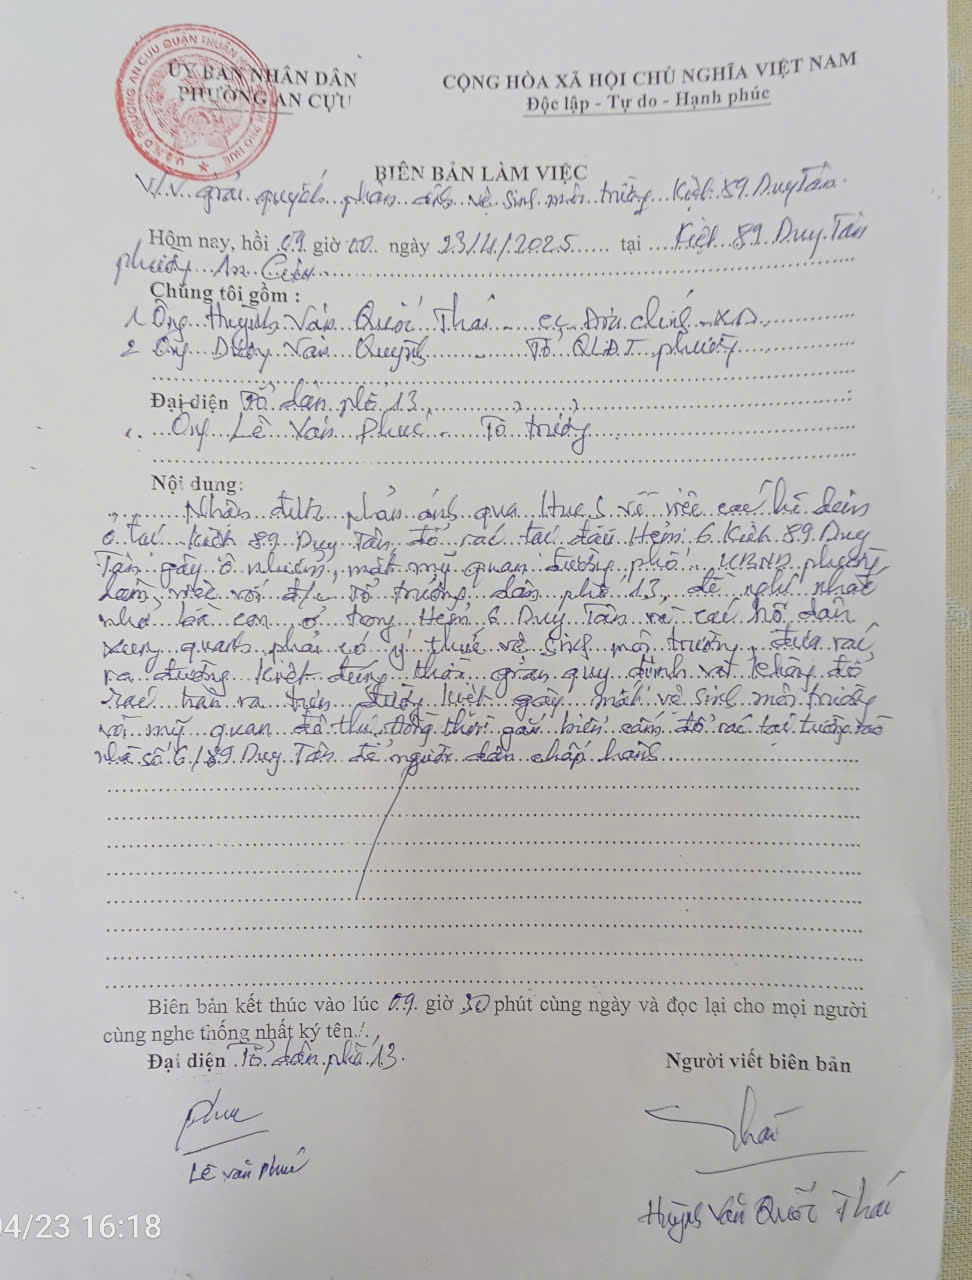 U.B.N.D PHƯỜNG AN CỰU QUẬN THUẬN HUẾ
ỦY BAN NHÂN DÂN
PHƯỜNG AN CỰU
CỘNG HÒA XÃ HỘI CHỦ NGHĨA VIỆT NAM
Độc lập - Tự do - Hạnh phúc
BIÊN BẢN LÀM VIỆC
V/v giải quyết phản ánh vệ sinh môi trường Kiệt 89 Duy Tân
Hôm nay, hồi 09 giờ 00 ngày 23/4/2025 tại Kiệt 89 Duy Tân
phường An Cựu
Chúng tôi gồm :
1. Ông Huỳnh Văn Quốc Thái - CC Địa chính - XD
2. Ông Dương Văn Quỳnh - Tổ QLĐT phường
Đại diện Tổ dân phố 13
1. Ông Lê Văn Phúc - Tổ trưởng
Nội dung:
Nhận được phản ánh qua Hue S về việc các hộ dân
ở tại Kiệt 89 Duy Tân đổ rác tại đầu Hẻm 6 Kiệt 89 Duy
Tân gây ô nhiễm, mất mỹ quan đường phố. UBND phường
làm việc với đ/c Tổ trưởng dân phố 13, đề nghị nhắc
nhở bà con ở trong Hẻm 6 Duy Tân và các hộ dân
xung quanh phải có ý thức vệ sinh môi trường, đưa rác
ra đường kiệt đúng thời gian quy định và không đổ
rác tràn ra trên đường kiệt gây mất vệ sinh môi trường
và mỹ quan đô thị, đồng thời gắn biển cấm đổ rác tại tường rào
nhà số 6/89 Duy Tân để người dân chấp hành
Biên bản kết thúc vào lúc 09 giờ 30 phút cùng ngày và đọc lại cho mọi người
cùng nghe thống nhất ký tên./.
Đại diện Tổ dân phố 13
Người viết biên bản
Phuc
Thái
Lê Văn Phúc
Huỳnh Văn Quốc Thái
04/23 16:18